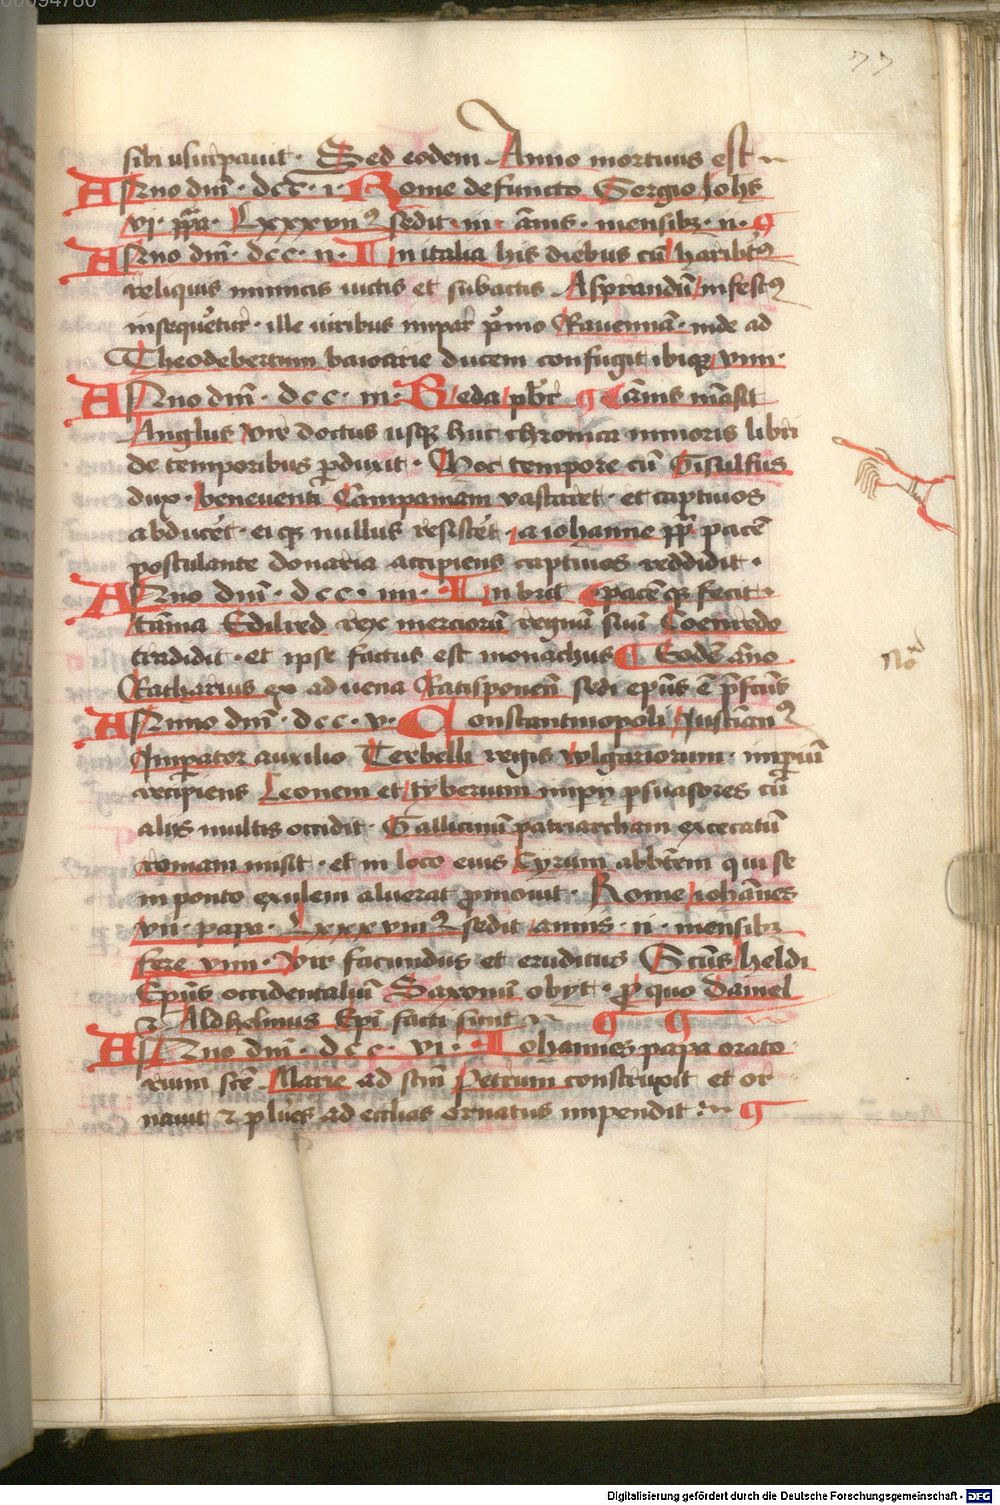 00094780
77
sibi usurpavit · Sed eodem Anno mortuus est
Anno dnī · dcc · i · Rome defuncto Sergio Johēs
vi · ppa · Lxxxvii9 sedit · iii · ānis · mensibz · ii ·
Anno dnī · dcc · ii · In italia his diebus cū haribt9
reliquis inimicis victis et subactis Asprandū infest9
insequēret᷑ · ille viribus impar p̄mo Ravennā · inde ad
Theodebertum baioarie ducem confugit ibiqz viiii ·
Anno dnī · dcc · iii · Beda pbr̄ ānis māsit
Anglus vir doctus usqz huc chronica minoris libri
de temporibus p̄duxit · Hoc tempore cū Gisulfus
dux · beneventi Campaniam vastaret · et captivos
abducēt · eiqz nullus resistēt · a iohanne pp̄ pacē
postulante donaria accipiens captivos reddidit ·
Anno dnī · dcc · iiii · In brit pacēqz fecit ·
tānia Edilred rex merciorū regnū suū Coenredo
tradidit · et ipse factus est monachus Eodē āno
No
Ratharius ex advena Ratisponēn sedi ep̄us ē p̄fctus
Anno dnī · dcc · v · Constantinopoli Justinian9
Imp̄ator auxilio Terbelli regis vulgariorum · imp̄iū
recipiens Leonem et tyberium impij p̄suasores cū
aliis multis occidit · Gallicinū patriarcham excecatū
romam misit · et in loco eius Cyrum abbtem qui se
in ponto exulem aluerat p̄movit · Rome iohānes
vii · papa · Lxxxviii9 sedit annis · ii · mensibz
fere viiii · Vir facundus et eruditus Sctūs heldi
Ep̄us occidentaliū Saxonū obijt · p̄ quo Daniel
et Aldhelmus Ep̄i facti sunt
Anno dnī · dcc · vi · Iohannes papa orato
rium sctē Marie ad sctm Petrum construxit et or
navit et pl̄ires ad ecclīas ornatus impendit
Digitalisierung gefördert durch die Deutsche Forschungsgemeinschaft - DFG